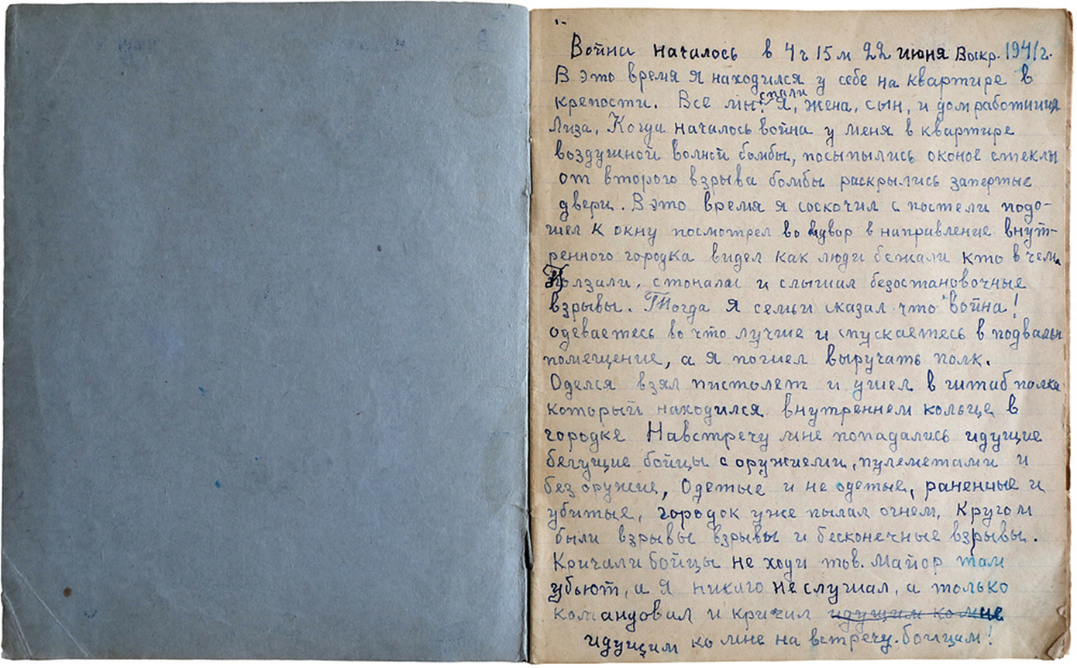 Война началось в 4 ч 15 м 22 июня Воскр. 1941 г.
В это время я находился у себе на квартире в
крепости. Все мы спали. Я, жена, сын, и домработница
Лиза. Когда началось война у меня в квартире
воздушной волной бомбы, посыпылись оконое стеклы
от второго взрыва бомбы раскрылись запертые
двери. В это время я соскочил с постели подо-
шел к окну посмотрел во двор в направление внут-
ренного городка видел как люди бежали кто в чем,
Ползали, стонали и слышал безостановочные
взрывы. Тогда я семьи сказал что война!
одеваетесь во что лучше и спускаетесь в подвальн
помещение, а я пошел выручать полк.
Оделся взял пистолет и ушел в штаб полка
который находился внутреннем кольце в
городке Навстречу мне попадались идущие
бегущие бойцы с оружием, пулеметами и
без оружие, Одетые и не одетые, раненные и
убитые, городок уже пылал огнем, Кругом
были взрывы взрывы и бесконечные взрывы.
Кричали бойцы не ходи тов. Майор там
убьют, а я никаго не слушал, а только
командовал и кричал идущим ко мне
идущим ко мне на встречу бойцам!